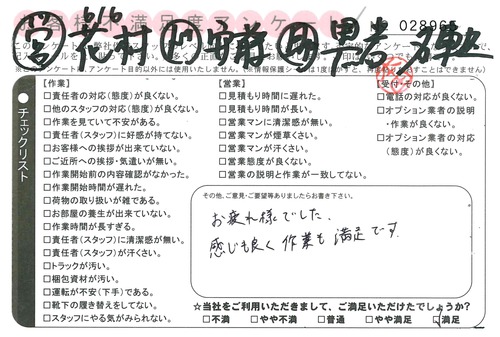 お客様ご満足度アンケート
028965
チェックリスト
【作業】
□責任者の対応(態度)が良くない。
□他のスタッフの対応(態度)が良くない。
□作業を見ていて不安がある。
□責任者(スタッフ)に好感が持てない。
□お客様への挨拶が出来ていない。
□ご近所への挨拶・気遣いが無い。
□作業開始前の内容確認がなかった。
□作業開始時間が遅れた。
□荷物の取り扱いが雑である。
□お部屋の養生が出来ていない。
□作業時間が長すぎる。
□責任者(スタッフ)に清潔感が無い。
□責任者(スタッフ)が汗くさい。
□トラックが汚い。
□梱包資材が汚い。
□運転が不安(下手)である。
□靴下の履き替えをしてない。
□スタッフにやる気がみられない。
【営業】
□見積もり時間に遅れた。
□見積もり時間が長い。
□営業マンに清潔感が無い。
□営業マンが煙草くさい。
□営業マンが汗くさい。
□営業態度が良くない。
□営業の説明と作業が一致してない。
【受付・その他】
□電話の対応が良くない。
□オプション業者の説明
・作業が良くない。
□オプション業者の対応
(態度)が良くない。
その他、ご意見・ご要望等ありましたらお書き下さい。
お疲れ様でした。
感じも良く作業も満足です。
☆当社をご利用いただきまして、ご満足いただけたでしょうか?
□不満 □やや不満 □普通 □やや満足 □満足